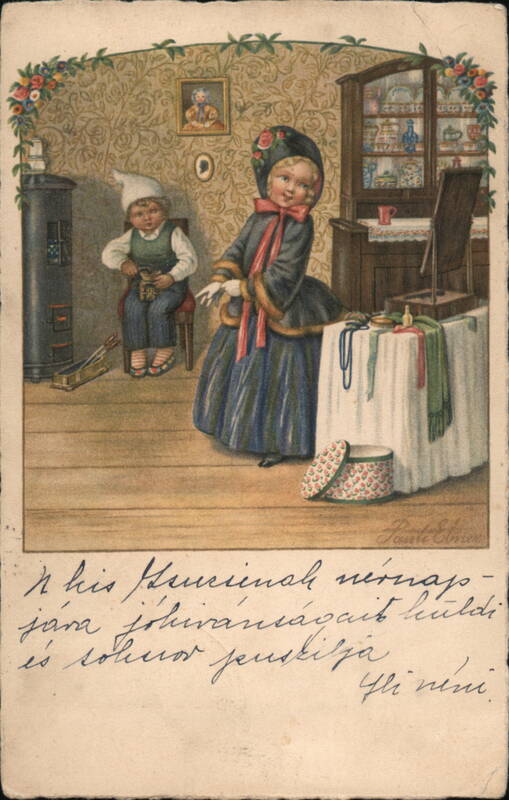 Pauli Ebner
A kis Zsuzsinak névnap-
jára jókivánságait küldi
és sokszor puszilja
Ili néni.